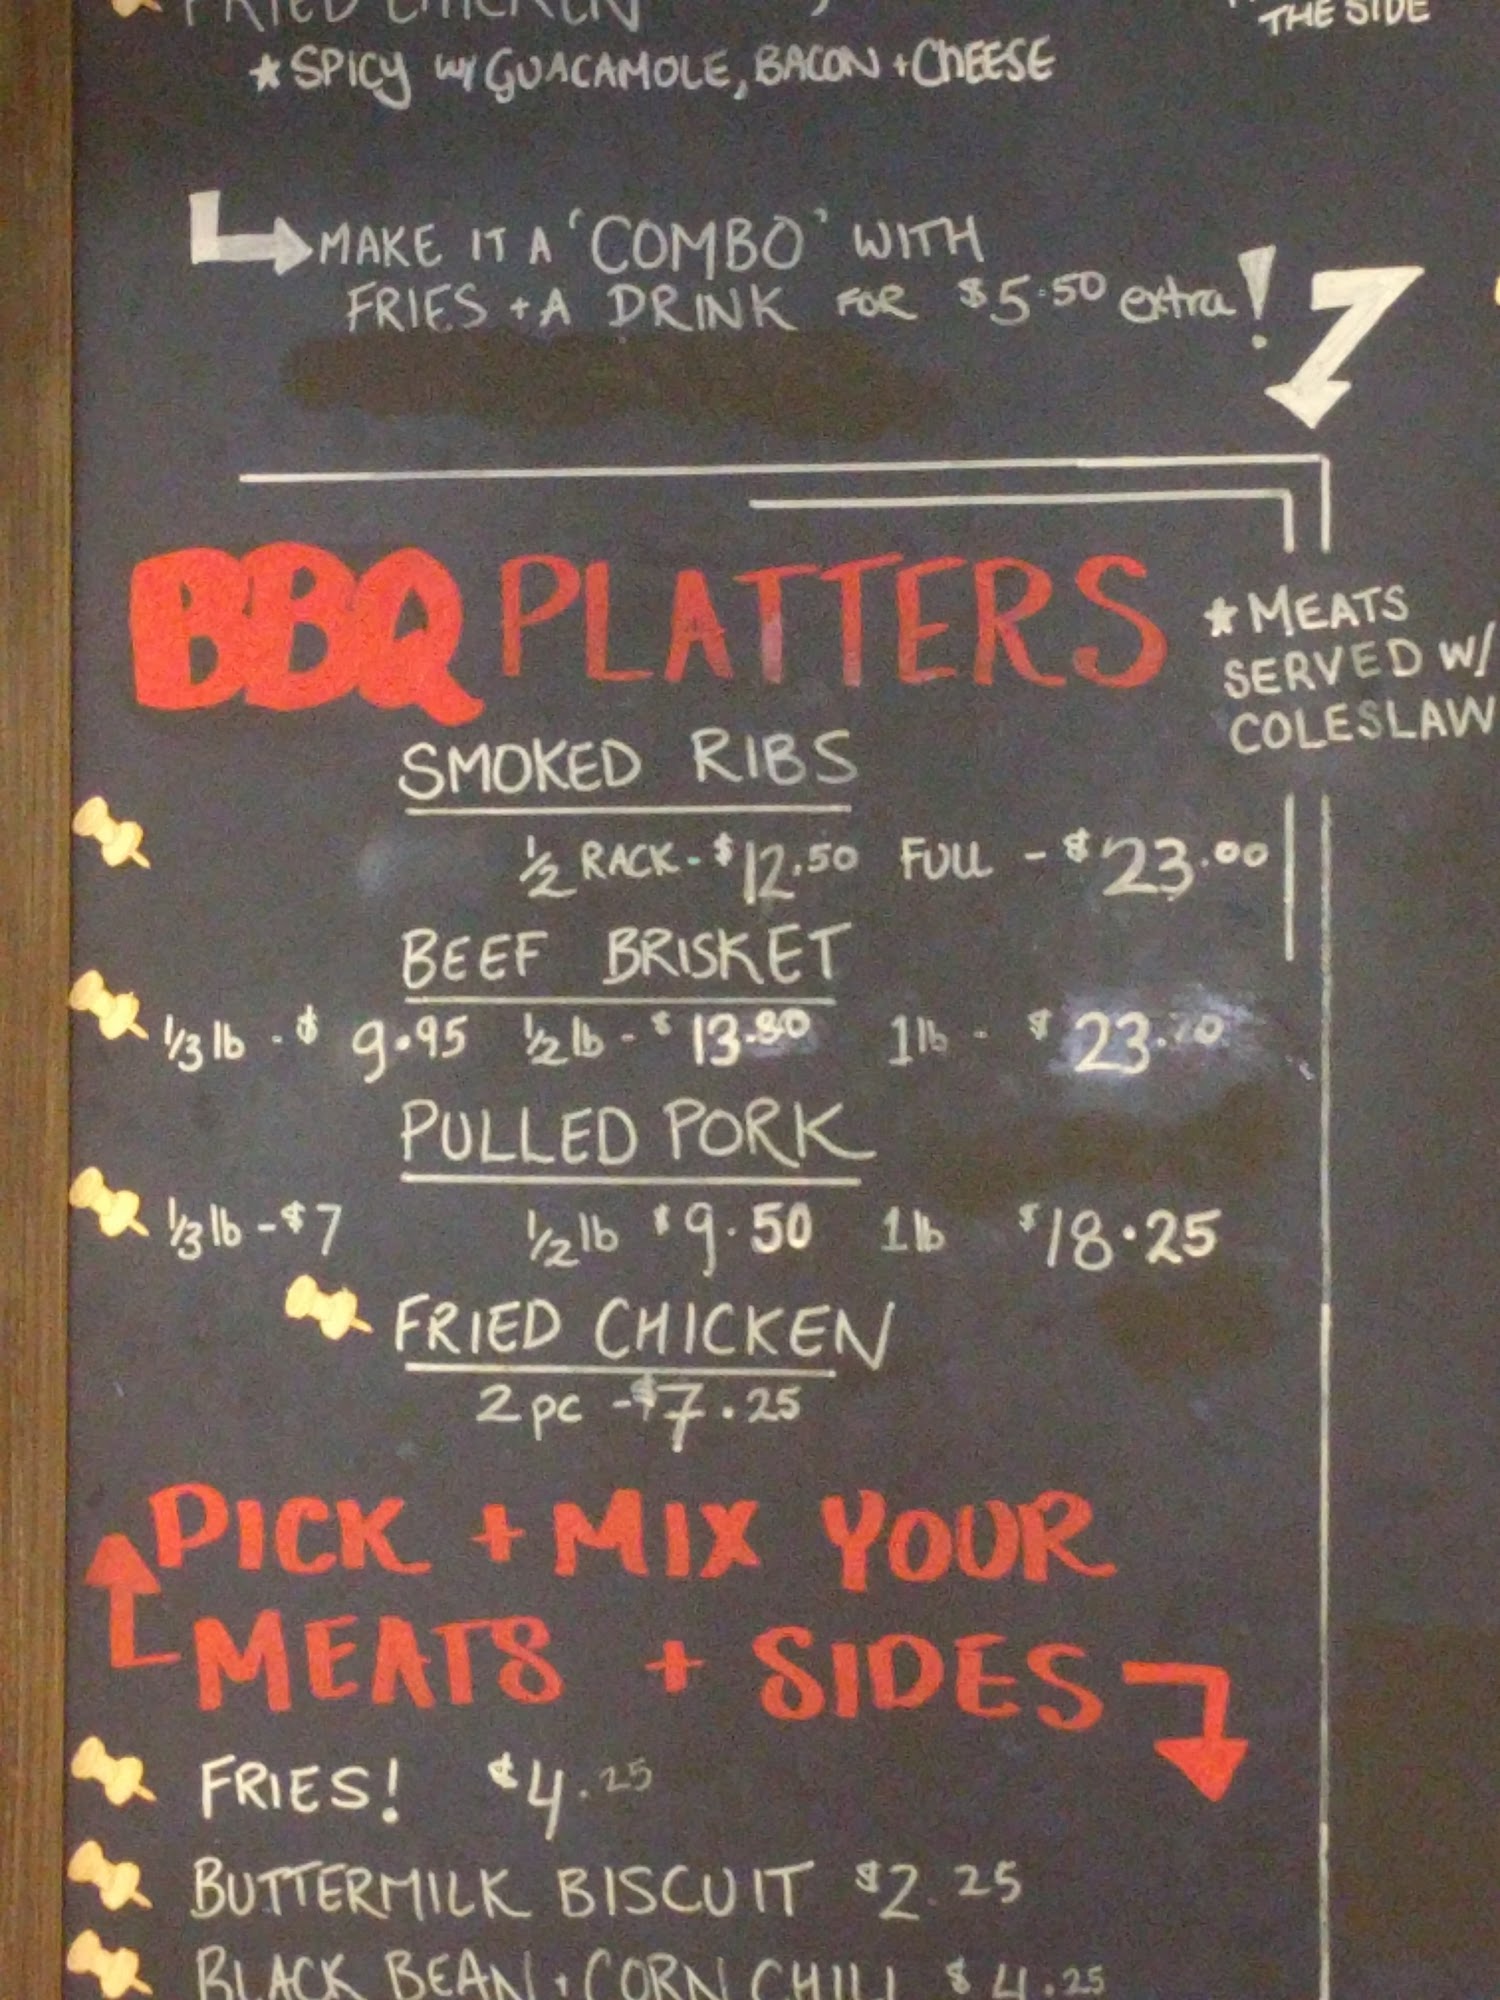 FRIED CHICKEN
THE SIDE
★ SPICY W/ GUACAMOLE, BACON + CHEESE
MAKE IT A 'COMBO' WITH
FRIES + A DRINK FOR $5.50 extra!
BBQ PLATTERS
★ MEATS
SERVED W/
COLESLAW
SMOKED RIBS
1/2 RACK - $12.50 FULL - $23.00
BEEF BRISKET
1/3 lb - $ 9.95 1/2 lb - $ 13.80 1 lb - $ 23.70
PULLED PORK
1/3 lb - $7 1/2 lb $9.50 1 lb $18.25
FRIED CHICKEN
2 pc - $7.25
PICK + MIX YOUR
MEATS + SIDES
FRIES! $4.25
BUTTERMILK BISCUIT $2.25
BLACK BEAN + CORN CHILI $4.25